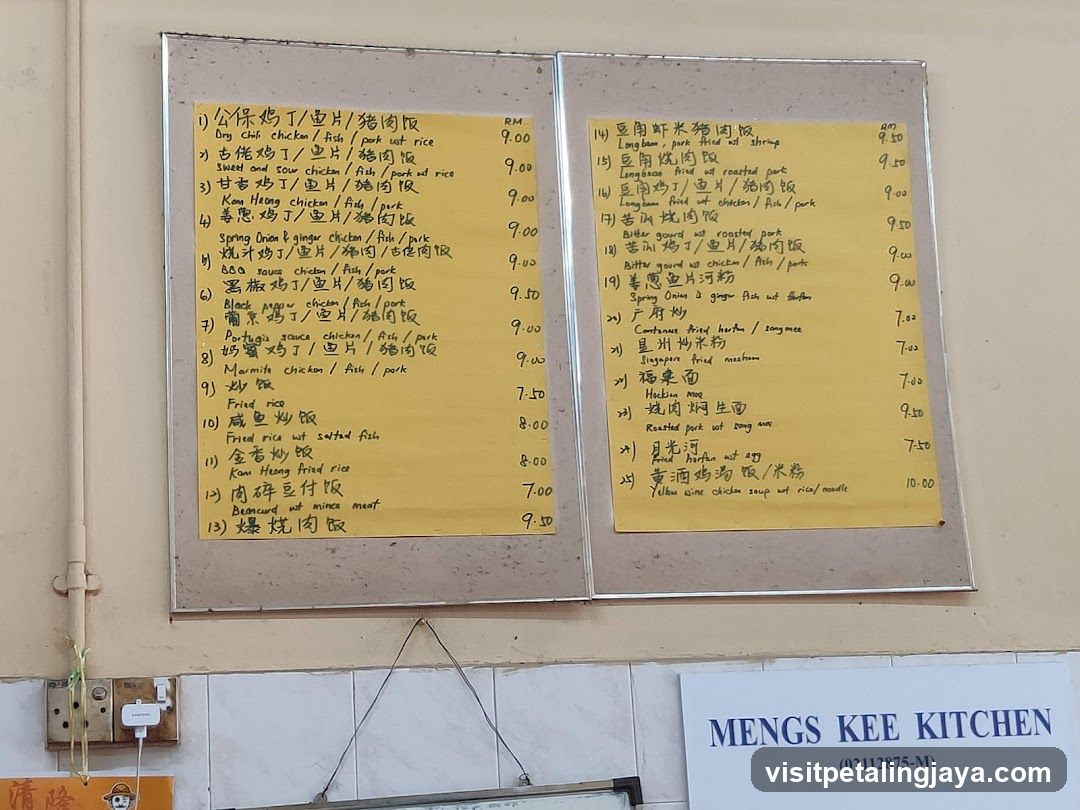 RM
1) 公保鸡丁/鱼片/猪肉饭
Dry Chili chicken/fish/pork wt rice 9.00
2) 古佬鸡丁/鱼片/猪肉饭
Sweet and sour chicken/fish/pork wt rice 9.00
3) 甘香鸡丁/鱼片/猪肉饭
Kam Heong chicken/fish/pork 9.00
4) 姜葱鸡丁/鱼片/猪肉饭
Spring Onion & ginger chicken/fish/pork 9.00
5) 烧汁鸡丁/鱼片/猪肉/古佬肉饭
BBQ sauce chicken/fish/pork 9.00
6) 黑椒鸡丁/鱼片/猪肉饭
Black pepper chicken/fish/pork 9.50
7) 葡京鸡丁/鱼片/猪肉饭
Portugis sauce chicken/fish/pork 9.00
8) 奶蜜鸡丁/鱼片/猪肉饭
Marmite chicken/fish/pork 9.00
9) 炒饭
Fried rice 7.50
10) 咸鱼炒饭
Fried rice wt salted fish 8.00
11) 金香炒饭
Kam Heong fried rice 8.00
12) 肉碎豆付饭
Beancurd wt mince meat 7.00
13) 爆烧肉饭 9.50
RM
14) 豆角虾米猪肉饭
Longbean, pork fried wt shrimp 9.50
15) 豆角烧肉饭
Longbean fried wt roasted pork 9.50
16) 豆角鸡丁/鱼片/猪肉饭
Longbean fried wt chicken/fish/pork 9.00
17) 苦瓜烧肉饭
Bitter gourd wt roasted pork 9.50
18) 苦瓜鸡丁/鱼片/猪肉饭
Bitter gourd wt chicken/fish/pork 9.00
19) 姜葱鱼片河粉
Spring Onion & ginger fish wt horfan 9.00
20) 广府炒
Contonese fried horfan/sangmee 7.00
21) 星州炒米粉
Singapore fried meehoon 7.00
22) 福建面
Hockien mee 7.00
23) 烧肉焖生面
Roasted pork wt sang mee 9.50
24) 月光河
Fried horfan wt egg 7.50
25) 黄酒鸡汤饭/米粉
Yellow wine chicken soup wt rice/noodle 10.00
SAMSUNG
清隆
MENGS KEE KITCHEN
visitpetalingjaya.com